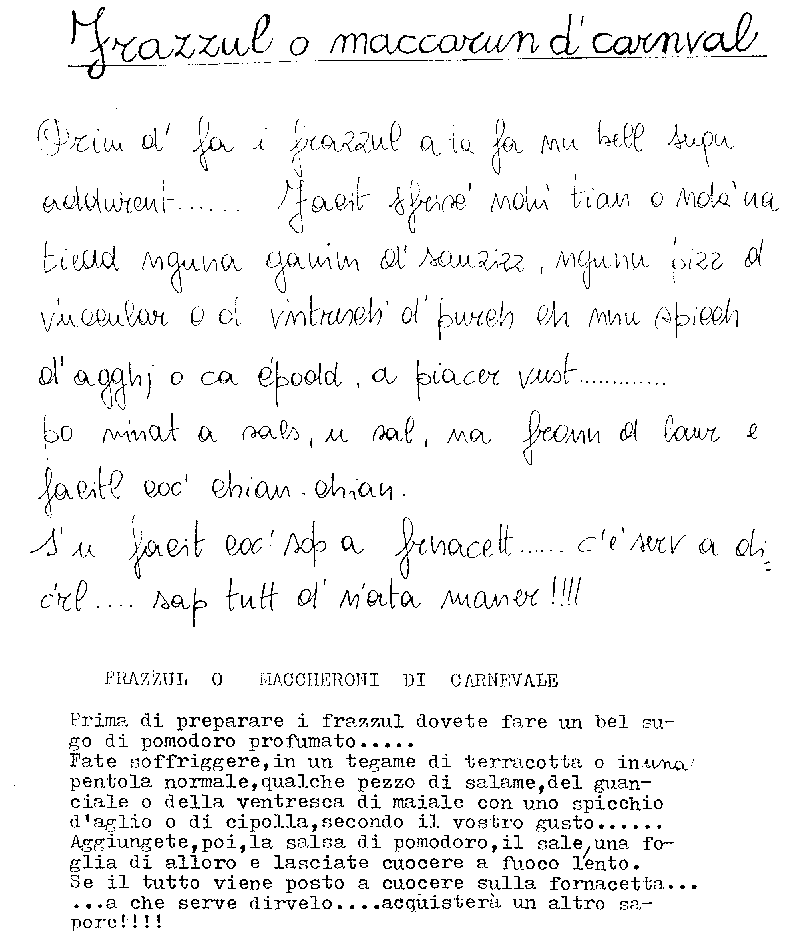 Frazzul o maccarun d'carnval
Prim d' fa i frazzul a ta fa nu bell sugu
addurent...... Facit sfrisc' ndu' tian o nda' na
tiedd nguna gavun d' sauzizz, ngunu pizz d
vuccular o d vntrusch' d' purch ch nnu spicch
d'agghj o ca cpodd, a piacer vust............
po minat a sals, u sal, na fronn d laur e
facitl coc' chian-chian.
S'u facit coc' sop a frnacett...... c'e' serv a di=
c'rl.... sap tutt d' n'ata maner!!!!
FRAZZUL O MACCHERONI DI CARNEVALE
Prima di preparare i frazzul dovete fare un bel su-
go di pomodoro profumato.....
Fate soffriggere,in un tegame di terracotta o in una
pentola normale,qualche pezzo di salame,del guan-
ciale o della ventresca di maiale con uno spicchio
d'aglio o di cipolla,secondo il vostro gusto......
Aggiungete,poi,la salsa di pomodoro,il sale,una fo-
glia di alloro e lasciate cuocere a fuoco lento.
Se il tutto viene posto a cuocere sulla fornacetta...
...a che serve dirvelo....acquisterà un altro sa-
pore!!!!